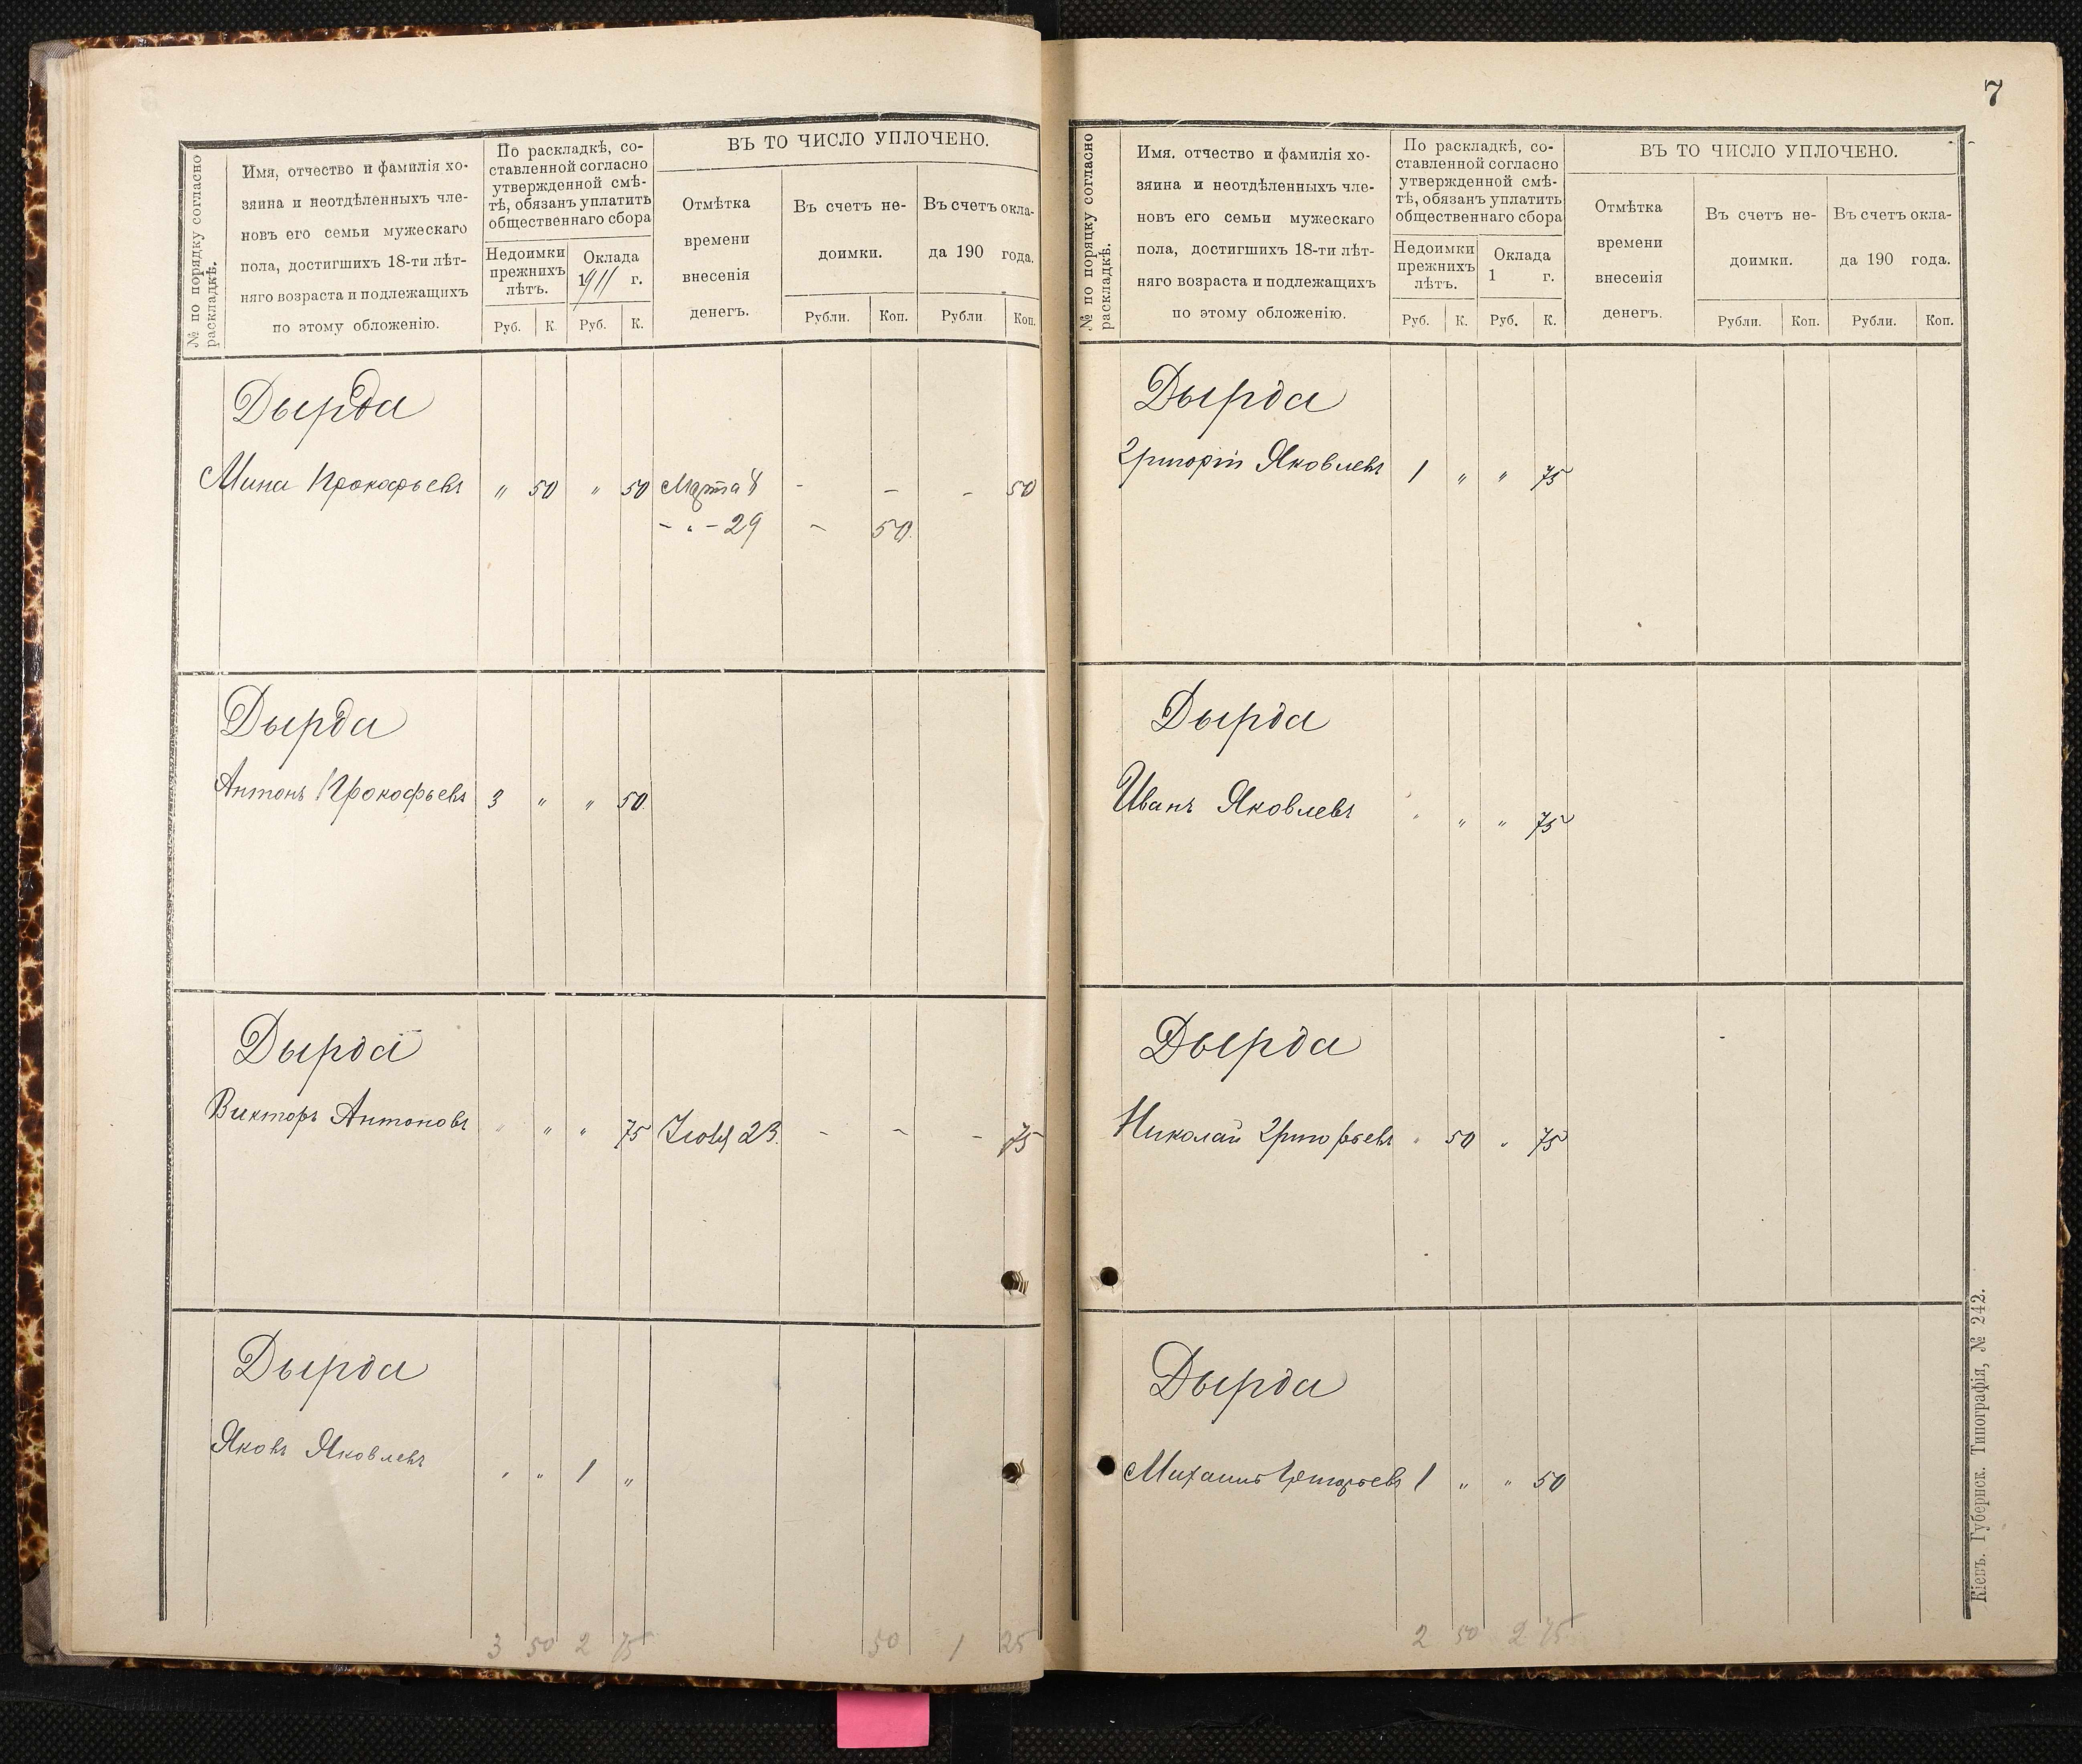 № по порядку согласно
раскладкѣ.
Имя, отчество и фамилія хо-
зяина и неотдѣленныхъ чле-
новъ его семьи мужескаго
пола, достигшихъ 18-ти лѣт-
няго возраста и подлежащихъ
по этому обложенію.
По раскладкѣ, со-
ставленной согласно
утвержденной смѣ-
тѣ, обязанъ уплатить
общественнаго сбора
Недоимки
прежнихъ
лѣтъ.
Оклада
1911 г.
Руб. К. Руб. К.
ВЪ ТО ЧИСЛО УПЛОЧЕНО.
Отмѣтка
времени
внесенія
денегъ.
Въ счетъ не-
доимки.
Въ счетъ окла-
да 190 года.
Рубли. Коп. Рубли Коп.
Дырда
Мина Прокофьевъ " 50 " 50 Марта 8 - - - 50
- " - 29 - 50.
Дырда
Антонъ Прокофьевъ 3 " " 50
Дырда
Викторъ Антоновъ " " " 75 23. - - - 75
Дырда
Яковъ Яковлевъ " " 1 "
3 50 2 75 50 1 25
7
№ по порядку согласно
раскладкѣ.
Имя. отчество и фамилія хо-
зяина и неотдѣленныхъ чле-
новъ его семьи мужескаго
пола, достигшихъ 18-ти лѣт-
няго возраста и подлежащихъ
по этому обложенію.
По раскладкѣ, со-
ставленной согласно
утвержденной смѣ-
тѣ, обязанъ уплатить
общественнаго сбора
Недоимки
прежнихъ
лѣтъ.
Оклада
1 г.
Руб. К. Руб. К.
ВЪ ТО ЧИСЛО УПЛОЧЕНО.
Отмѣтка
времени
внесенія
денегъ.
Въ счетъ не-
доимки.
Въ счетъ окла-
да 190 года.
Рубли. Коп. Рубли. Коп.
Дырда
Григорій Яковлевъ 1 " " 75
Дырда
Иванъ Яковлевъ " " " 75
Дырда
Николай Григорьевъ " 50 " 75
Дырда
Михаилъ Григорьевъ 1 " " 50
2 50 2 75
Кіевъ. Губернск. Типографія, № 242.